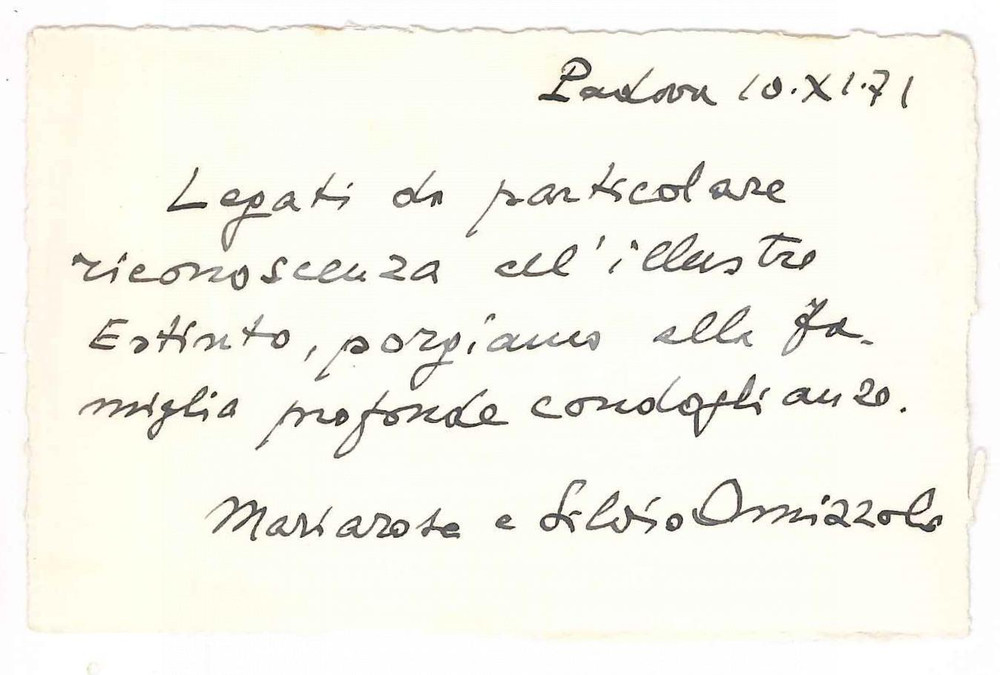 Padova 10.XI.71
Legati da particolare
riconoscenza all'illustre
Estinto, porgiamo alla fa-
miglia profonde condoglianze.
Mariarosa e Silvio Omizzolo